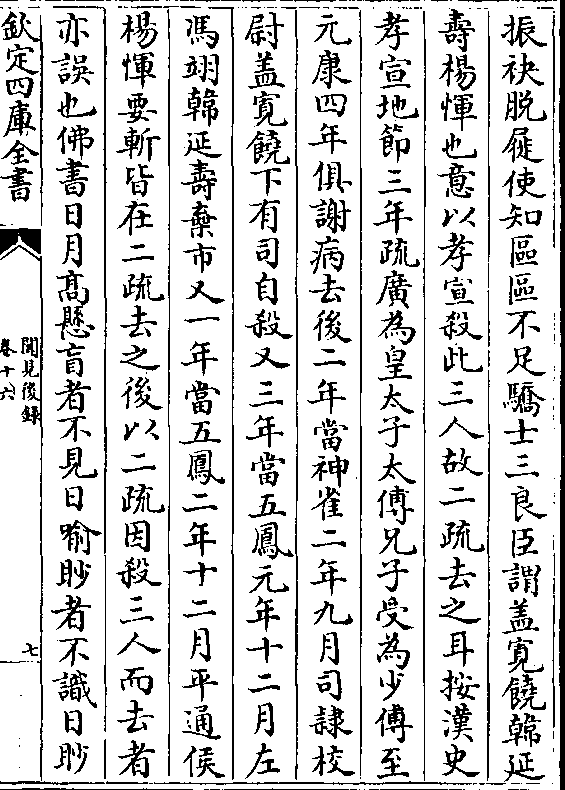 振袂脱屣使知區區不足驕士三良臣謂盖寛饒韓延
壽楊惲也意以孝宣殺此三人故二疏去之耳按漢史
孝宣地節三年疏廣為皇太子太傅兄子受為少傅至
元康四年俱謝病去後二年當神雀二年九月司隸校
尉盖寛饒下有司自殺又三年當五鳳元年十二月左
馮翊韓延壽棄市又一年當五鳳二年十二月平通侯
楊惲要斬皆在二疏去之後以二疏因殺三人而去者
亦誤也佛書日月髙懸盲者不見日喻眇者不識日眇
欽定四庫全書
聞見後録
卷十六
七